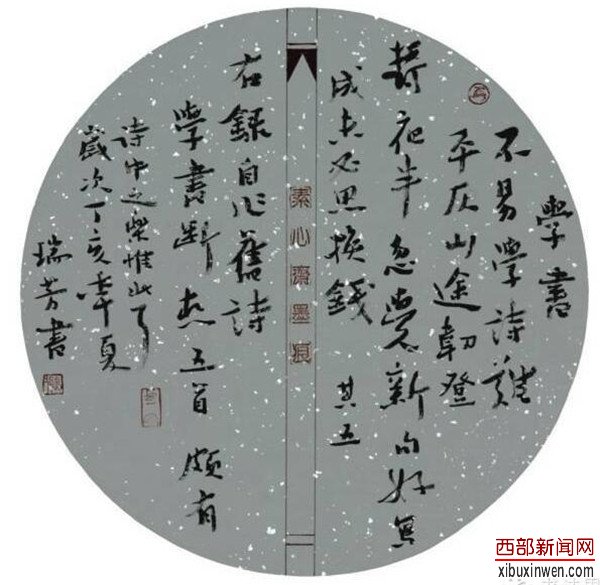 學書
不易學詩難
平仄山途韌登
攀夜半忽覺新句好
成未必思換錢 其五
素心齋墨痕
右錄自作舊詩
學書斷想五首 頗有
詩中之樂惟此
歲次丁亥夏
瑞芳書
西部新闻网
xibuxinwen.com